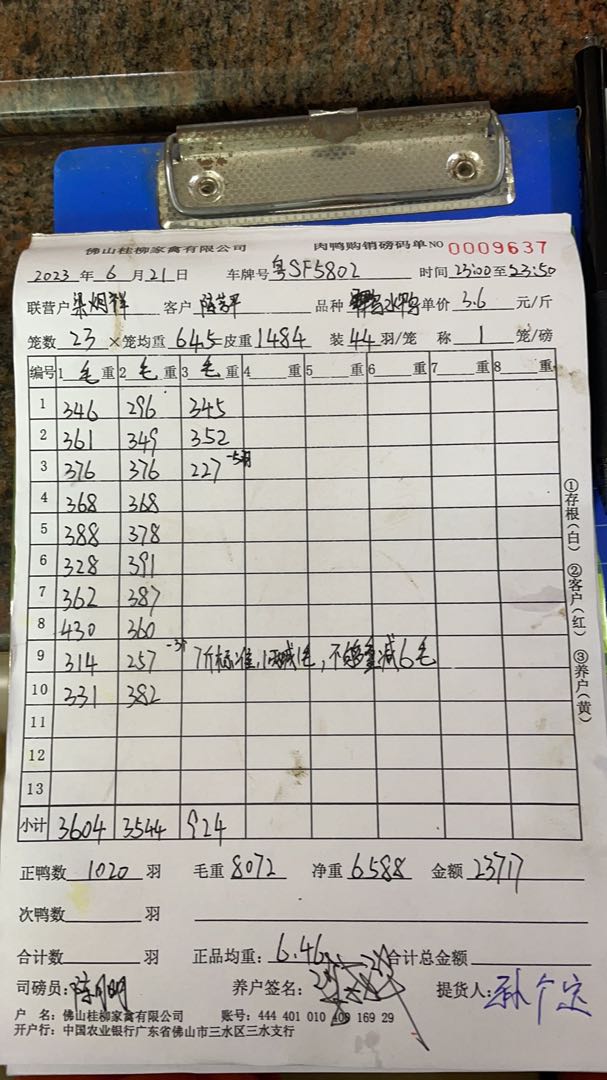 佛山桂柳家禽有限公司 肉鸭购销磅码单 NO 0009637
2023 年 6 月 21 日 车牌号 粤SF5802 时间 23:00 至 23:50
联营户 梁炳祥 客户 品种 水鸭 单价 3.6 元/斤
笼数 23 ×笼均重 64.5 皮重 1484 装 44 羽/笼 称 1 笼/磅
编号 1 毛 重 2 毛 重 3 毛 重 4 重 5 重 6 重 7 重 8 重
1 346 296 345
2 361 349 352
3 376 376 227 -5羽
4 368 368
5 388 378
6 328 391
7 362 387
8 430 360
9 314 257 7斤标准,1两减1毛,不够重减6毛
10 331 382
11
12
13
小计 3604 3544 924
正鸭数 1020 羽 毛重 8072 净重 6588 金额 23717
次鸭数 羽
合计数 羽 正品均重: 6.46 合计总金额
司磅员: 陈月明 养户签名: 提货人:
户 名: 佛山桂柳家禽有限公司 账号: 444 401 010 400 169 29
开户行: 中国农业银行广东省佛山市三水区三水支行
①存根(白) ②客户(红) ③养户(黄)